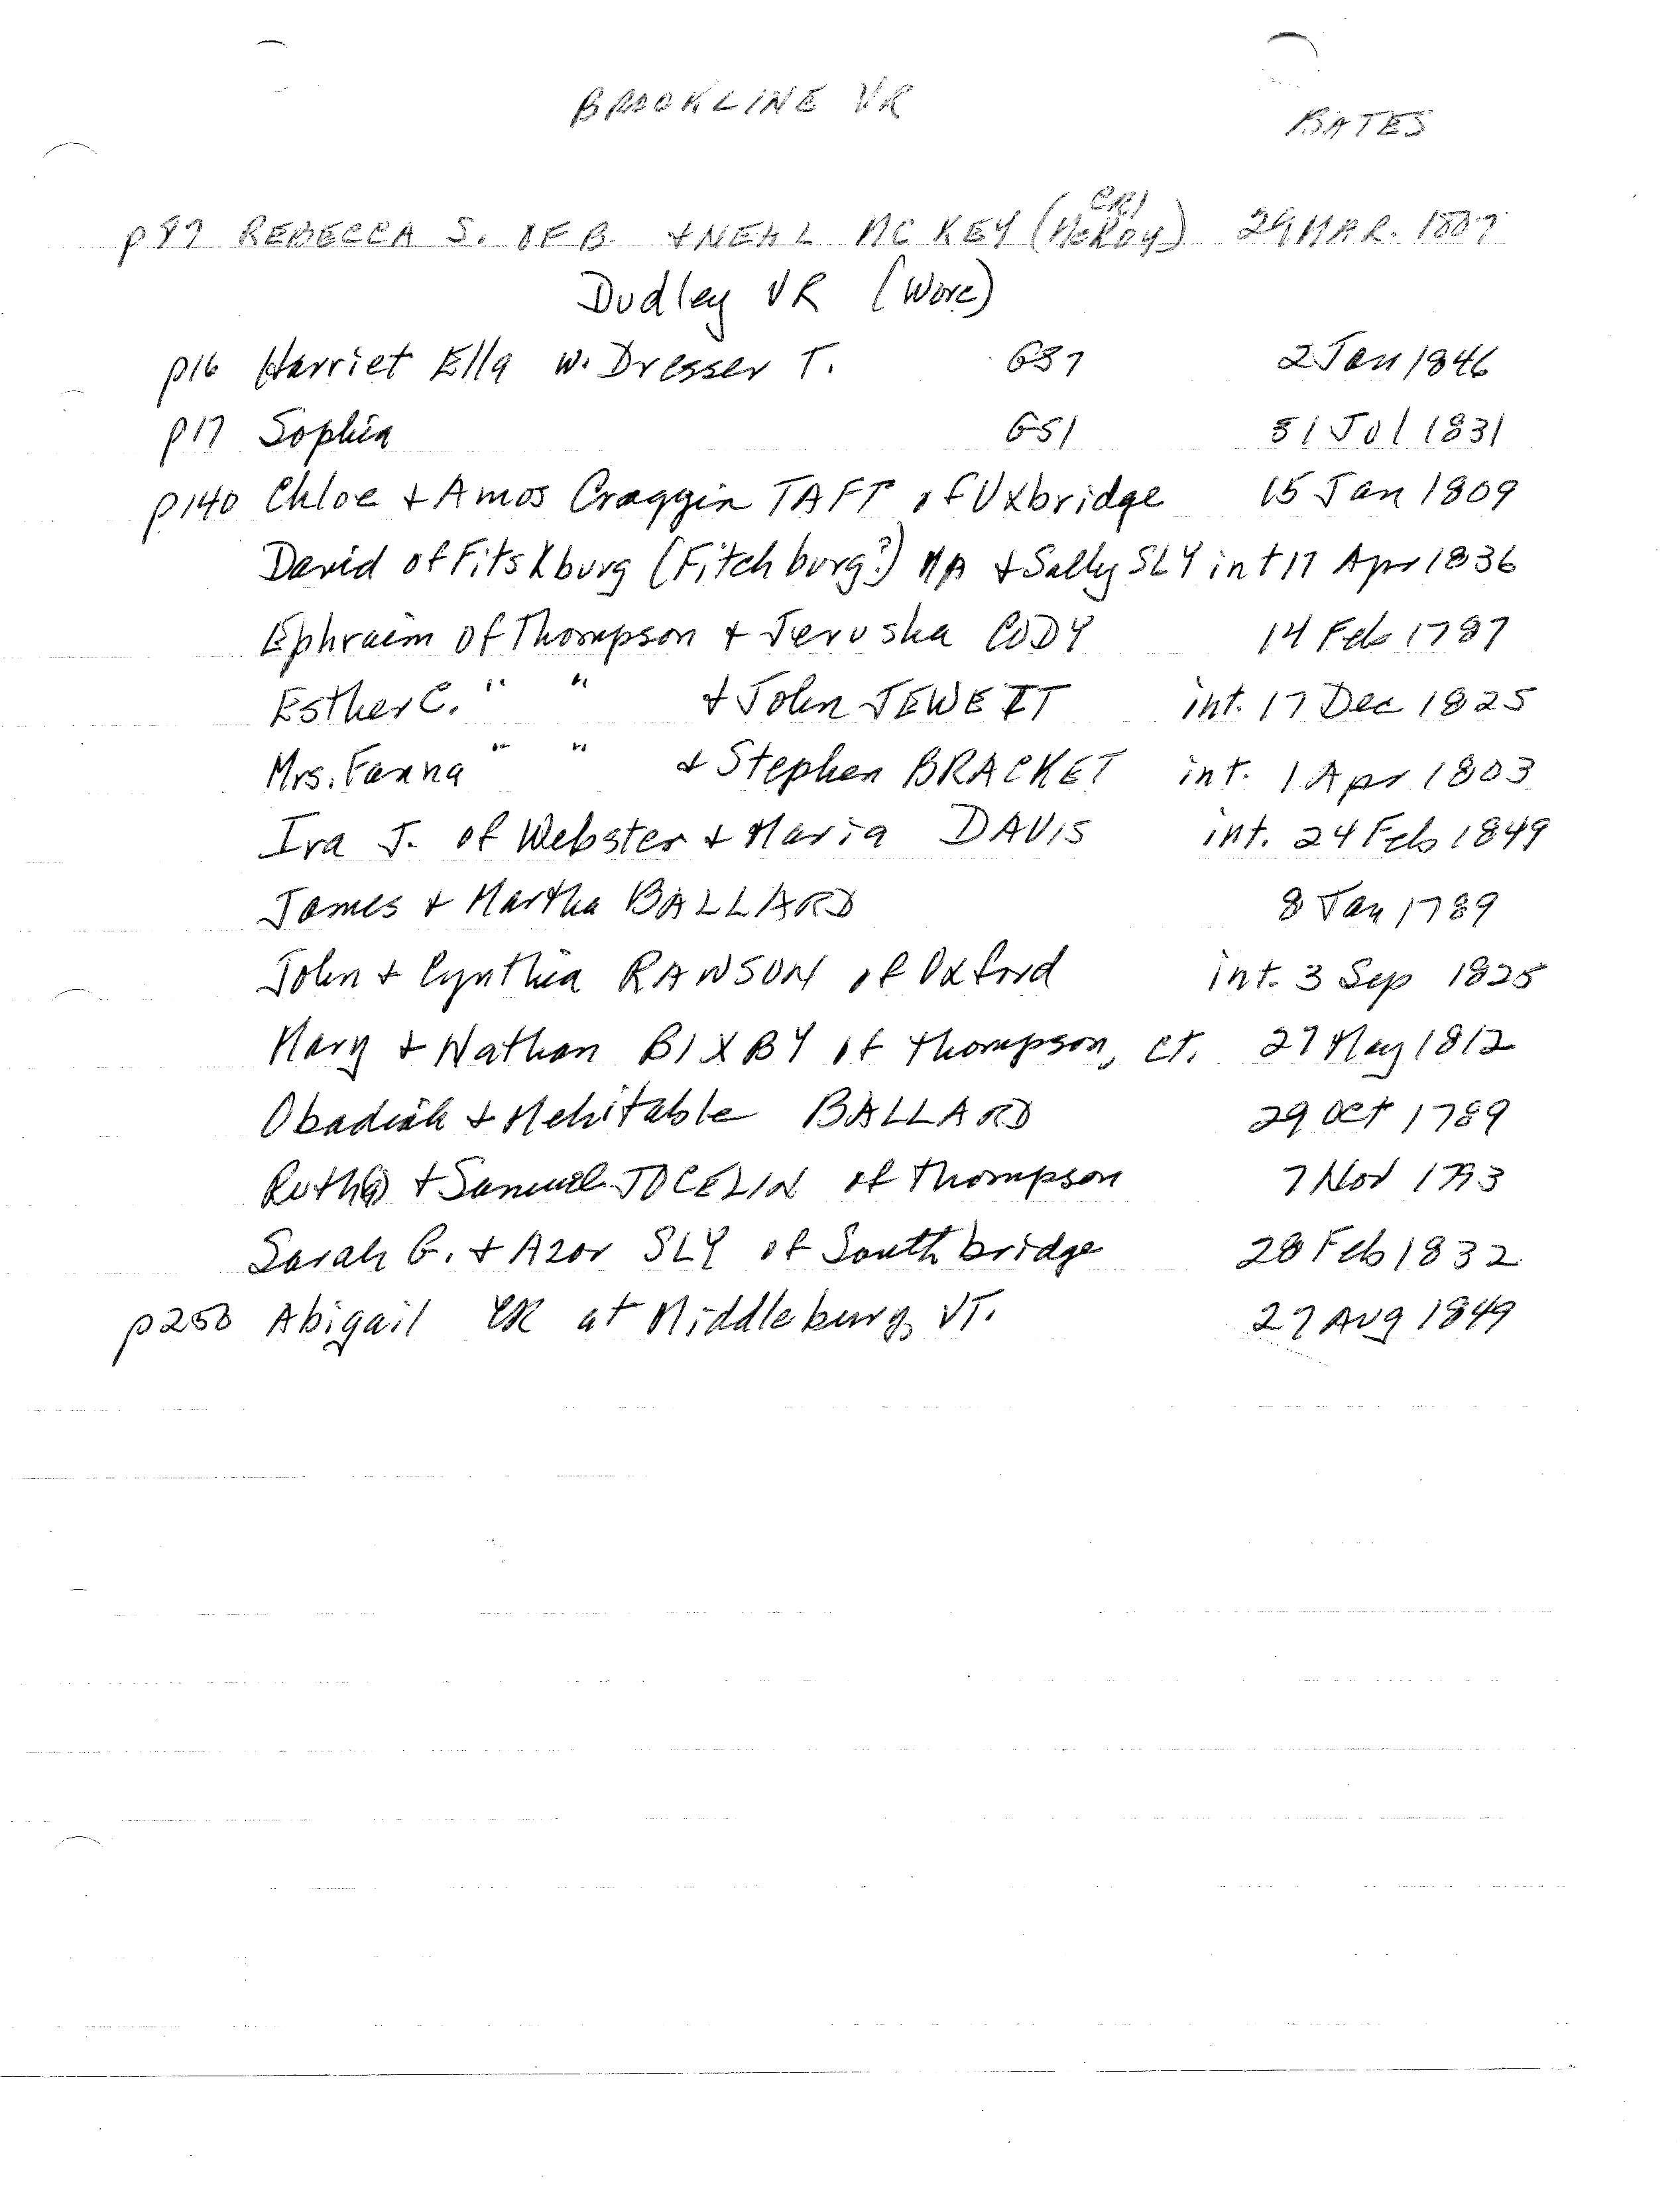 BROOKLINE VR
BATES
CR1
p97 REBECCA S. OF B. + NEAL MC KEY (McROY) 29 MAR. 1807
Dudley VR (Worc)
p16 Harriet Ella w. Dresser T. GS7 2 Jan 1846
p17 Sophia GS1 31 Jul 1831
p140 Chloe + Amos Craggin TAFT of Uxbridge 15 Jan 1809
David of Fitskburg (Fitchburg?) MA + Sally SLY int 17 Apr 1836
Ephraim of Thompson + Jerusha CODY 14 Feb 1787
Esther C. " " + John JEWETT int. 17 Dec 1825
Mrs. Fanna " " + Stephen BRACKET int. 1 Apr 1803
Ira J. of Webster + Maria DAVIS int. 24 Feb 1849
James + Martha BALLARD 8 Jan 1789
John + Cynthia RAWSON of Oxford int. 3 Sep 1825
Mary + Nathan BIXBY of Thompson, Ct. 27 May 1812
Obadiah + Mehitable BALLARD 29 Oct 1789
Ruth + Samuel JOCELIN of Thompson 7 Nov 1793
Sarah G. + Azor SLY of Southbridge 28 Feb 1832
p250 Abigail at Middlebury, VT. 27 Aug 1849